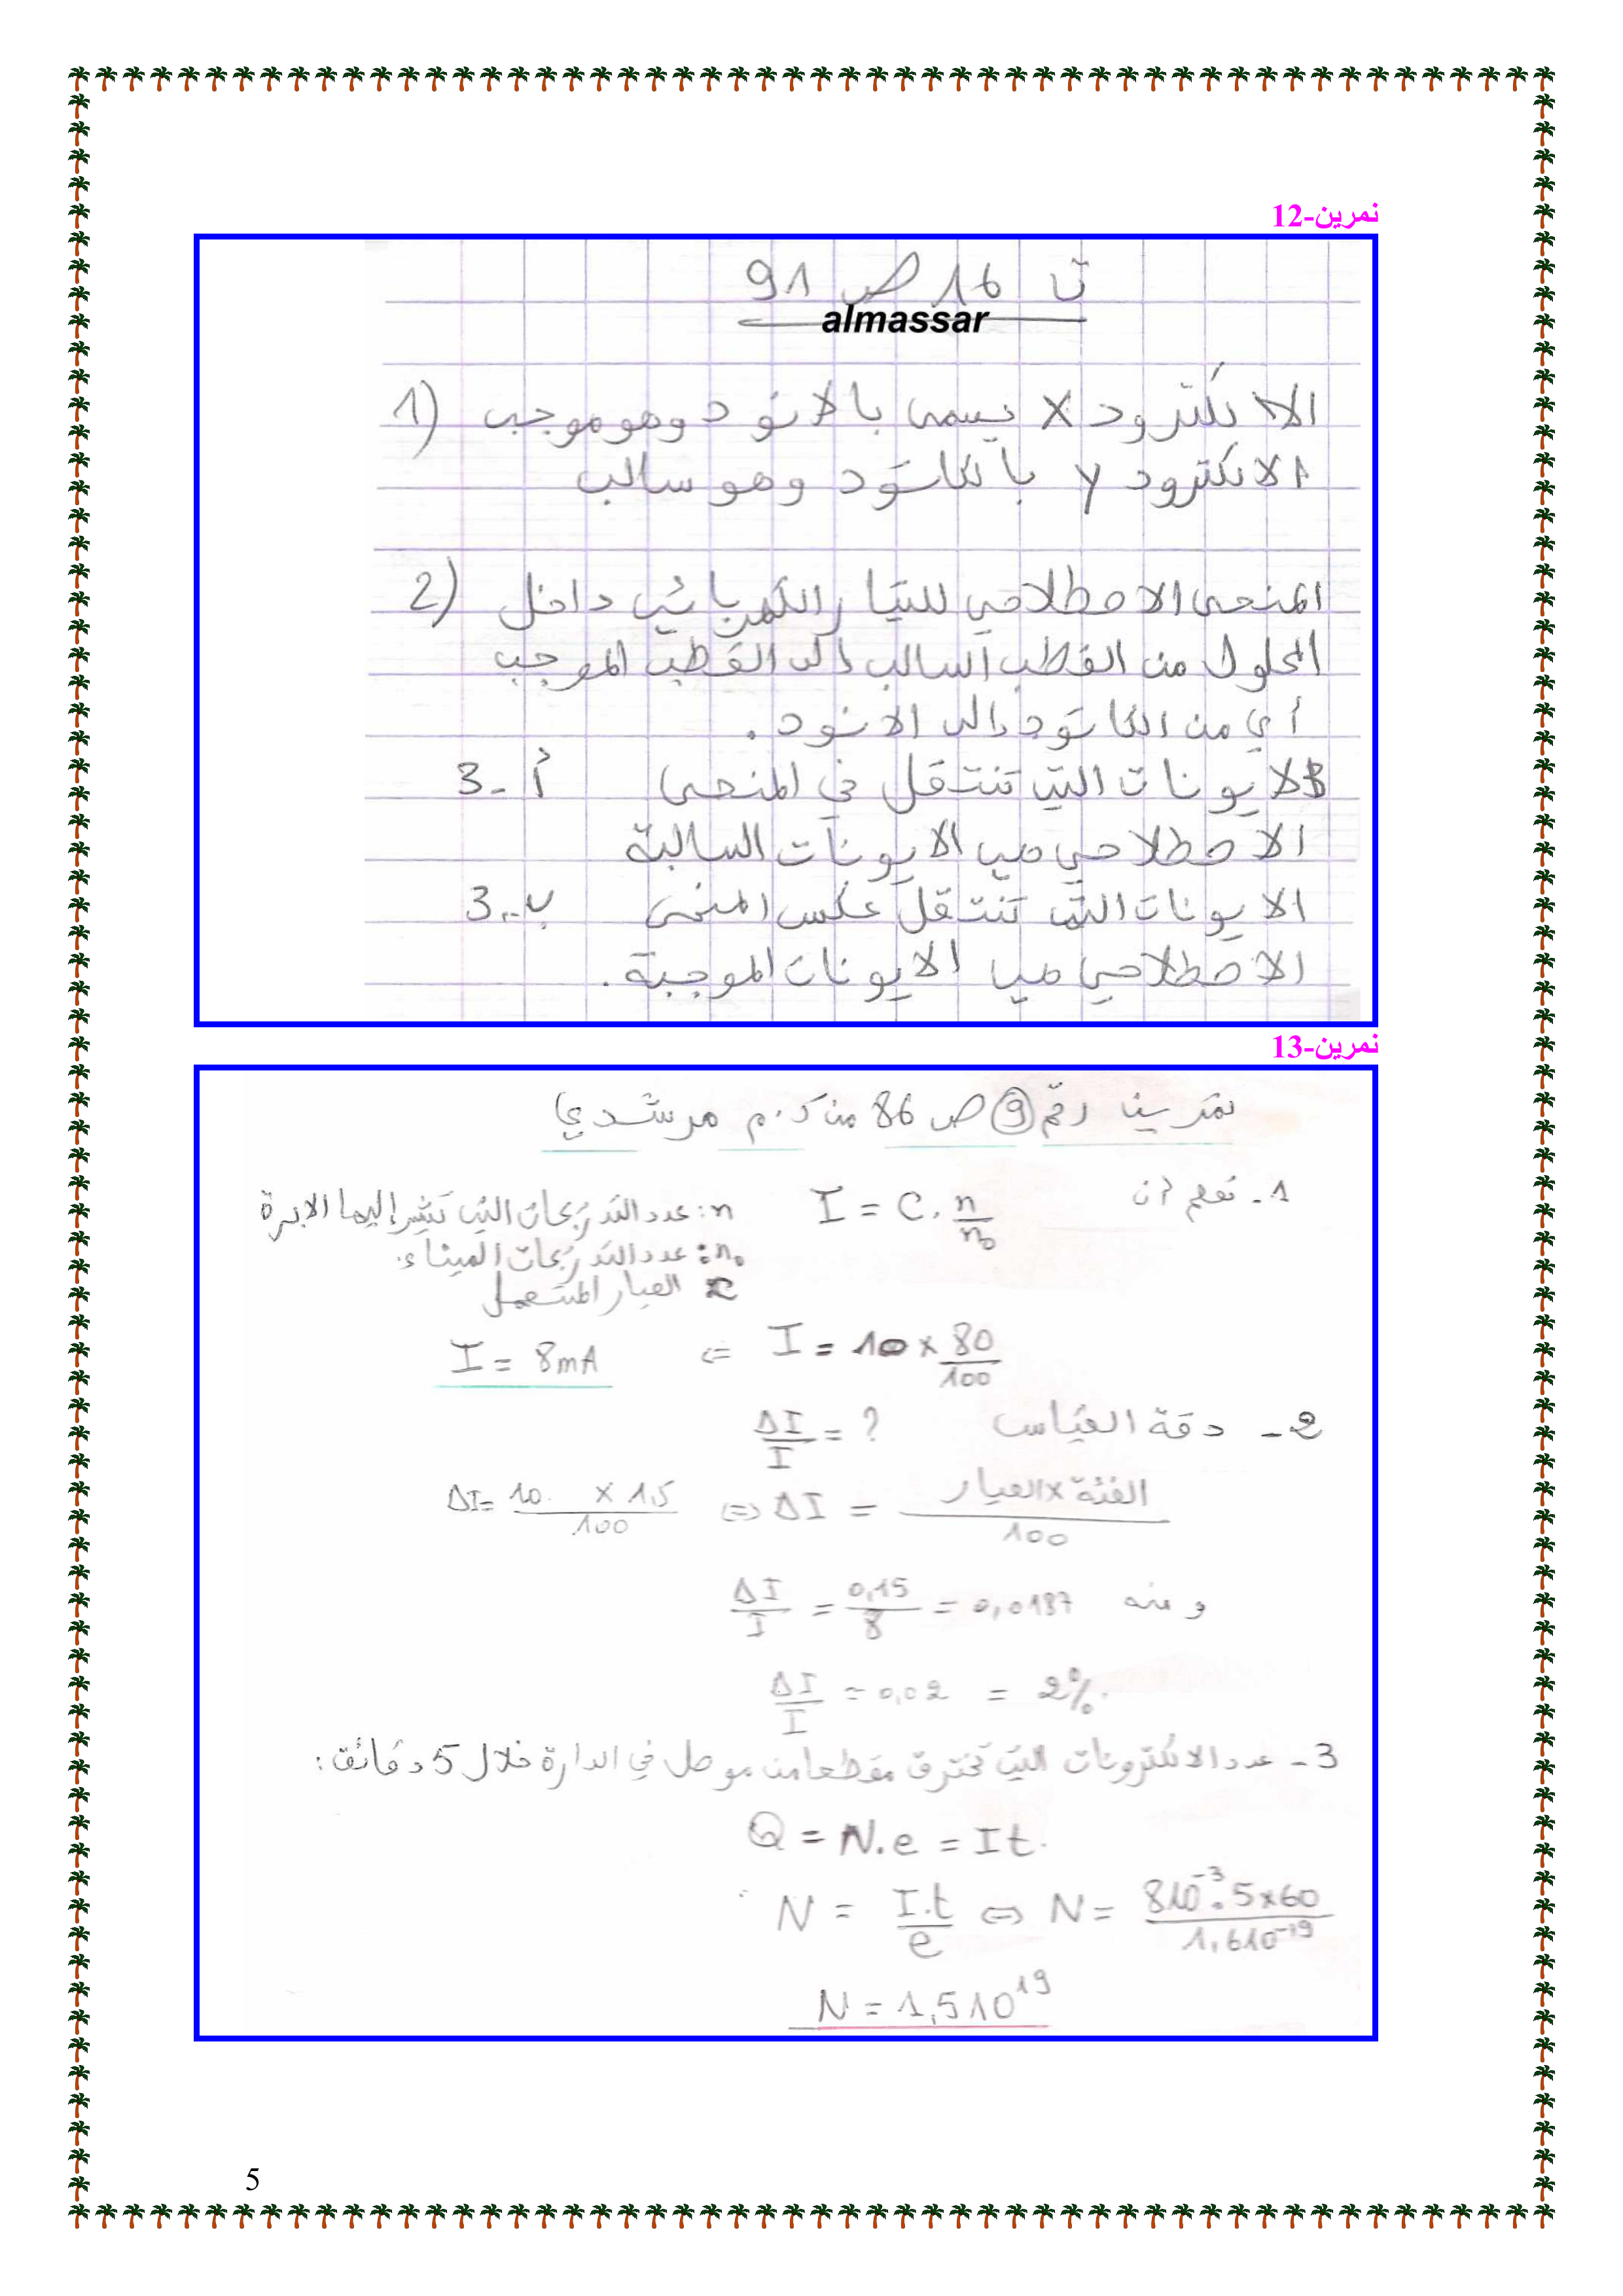 تمرين-12
ت 16 ص 91
almassar
1) الالكترود X يسمى بالانود وهو موجب
الالكترود Y بالكاتود وهو سالب
2) المنحى الاصطلاحي للتيار الكهربائي داخل
المحلول من القطب السالب الى القطب الموجب
أي من الكاتود الى الانود.
3-أ الايونات التي تنتقل في المنحى
الاصطلاحي هي الايونات السالبة
3-ب الايونات التي تنتقل عكس المنحى
الاصطلاحي هي الايونات الموجبة.
تمرين-13
تمرين رقم 9 ص 86 من ك.م مرشدي
1- نعلم أن I = C. n/n₀ n: عدد التدريجات التي تشير إليها الابرة
n₀: عدد التدريجات الميناء.
c العيار المستعمل
I = 10 × 80/100 ⇐ I = 8mA
2- دقة القياس ΔI/I = ?
ΔI = الفئة × العيار/100 ⇔ ΔI = 10 × 1,5/100
و منه ΔI/I = 0,15/8 = 0,0187
ΔI/I = 0,02 = 2%.
3- عدد الالكترونات التي تخترق مقطعا من موصل في الدارة خلال 5 دقائق:
Q = N.e = It.
N = I.t/e ⇔ N = 810⁻³.5×60/1,610⁻¹⁹
N = 1,510¹⁹
5